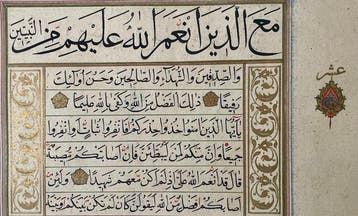 مَعَ الَّذِينَ أَنْعَمَ اللَّهُ عَلَيْهِمْ مِنَ النَّبِيِّينَ
وَالصِّدِّيقِينَ وَالشُّهَدَاءِ وَالصَّالِحِينَ وَحَسُنَ أُولَئِكَ
رَفِيقًا ذَلِكَ الْفَضْلُ مِنَ اللَّهِ وَكَفَى بِاللَّهِ عَلِيمًا
يَا أَيُّهَا الَّذِينَ آمَنُوا خُذُوا حِذْرَكُمْ فَانْفِرُوا ثُبَاتٍ أَوِ انْفِرُوا
جَمِيعًا وَإِنَّ مِنْكُمْ لَمَنْ لَيُبَطِّئَنَّ فَإِنْ أَصَابَتْكُمْ مُصِيبَةٌ
قَالَ قَدْ أَنْعَمَ اللَّهُ عَلَيَّ إِذْ لَمْ أَكُنْ مَعَهُمْ شَهِيدًا وَلَئِنْ
أَصَابَكُمْ فَضْلٌ مِنَ اللَّهِ لَيَقُولَنَّ كَأَنْ لَمْ تَكُنْ بَيْنَكُمْ وَبَيْنَهُ
عشر